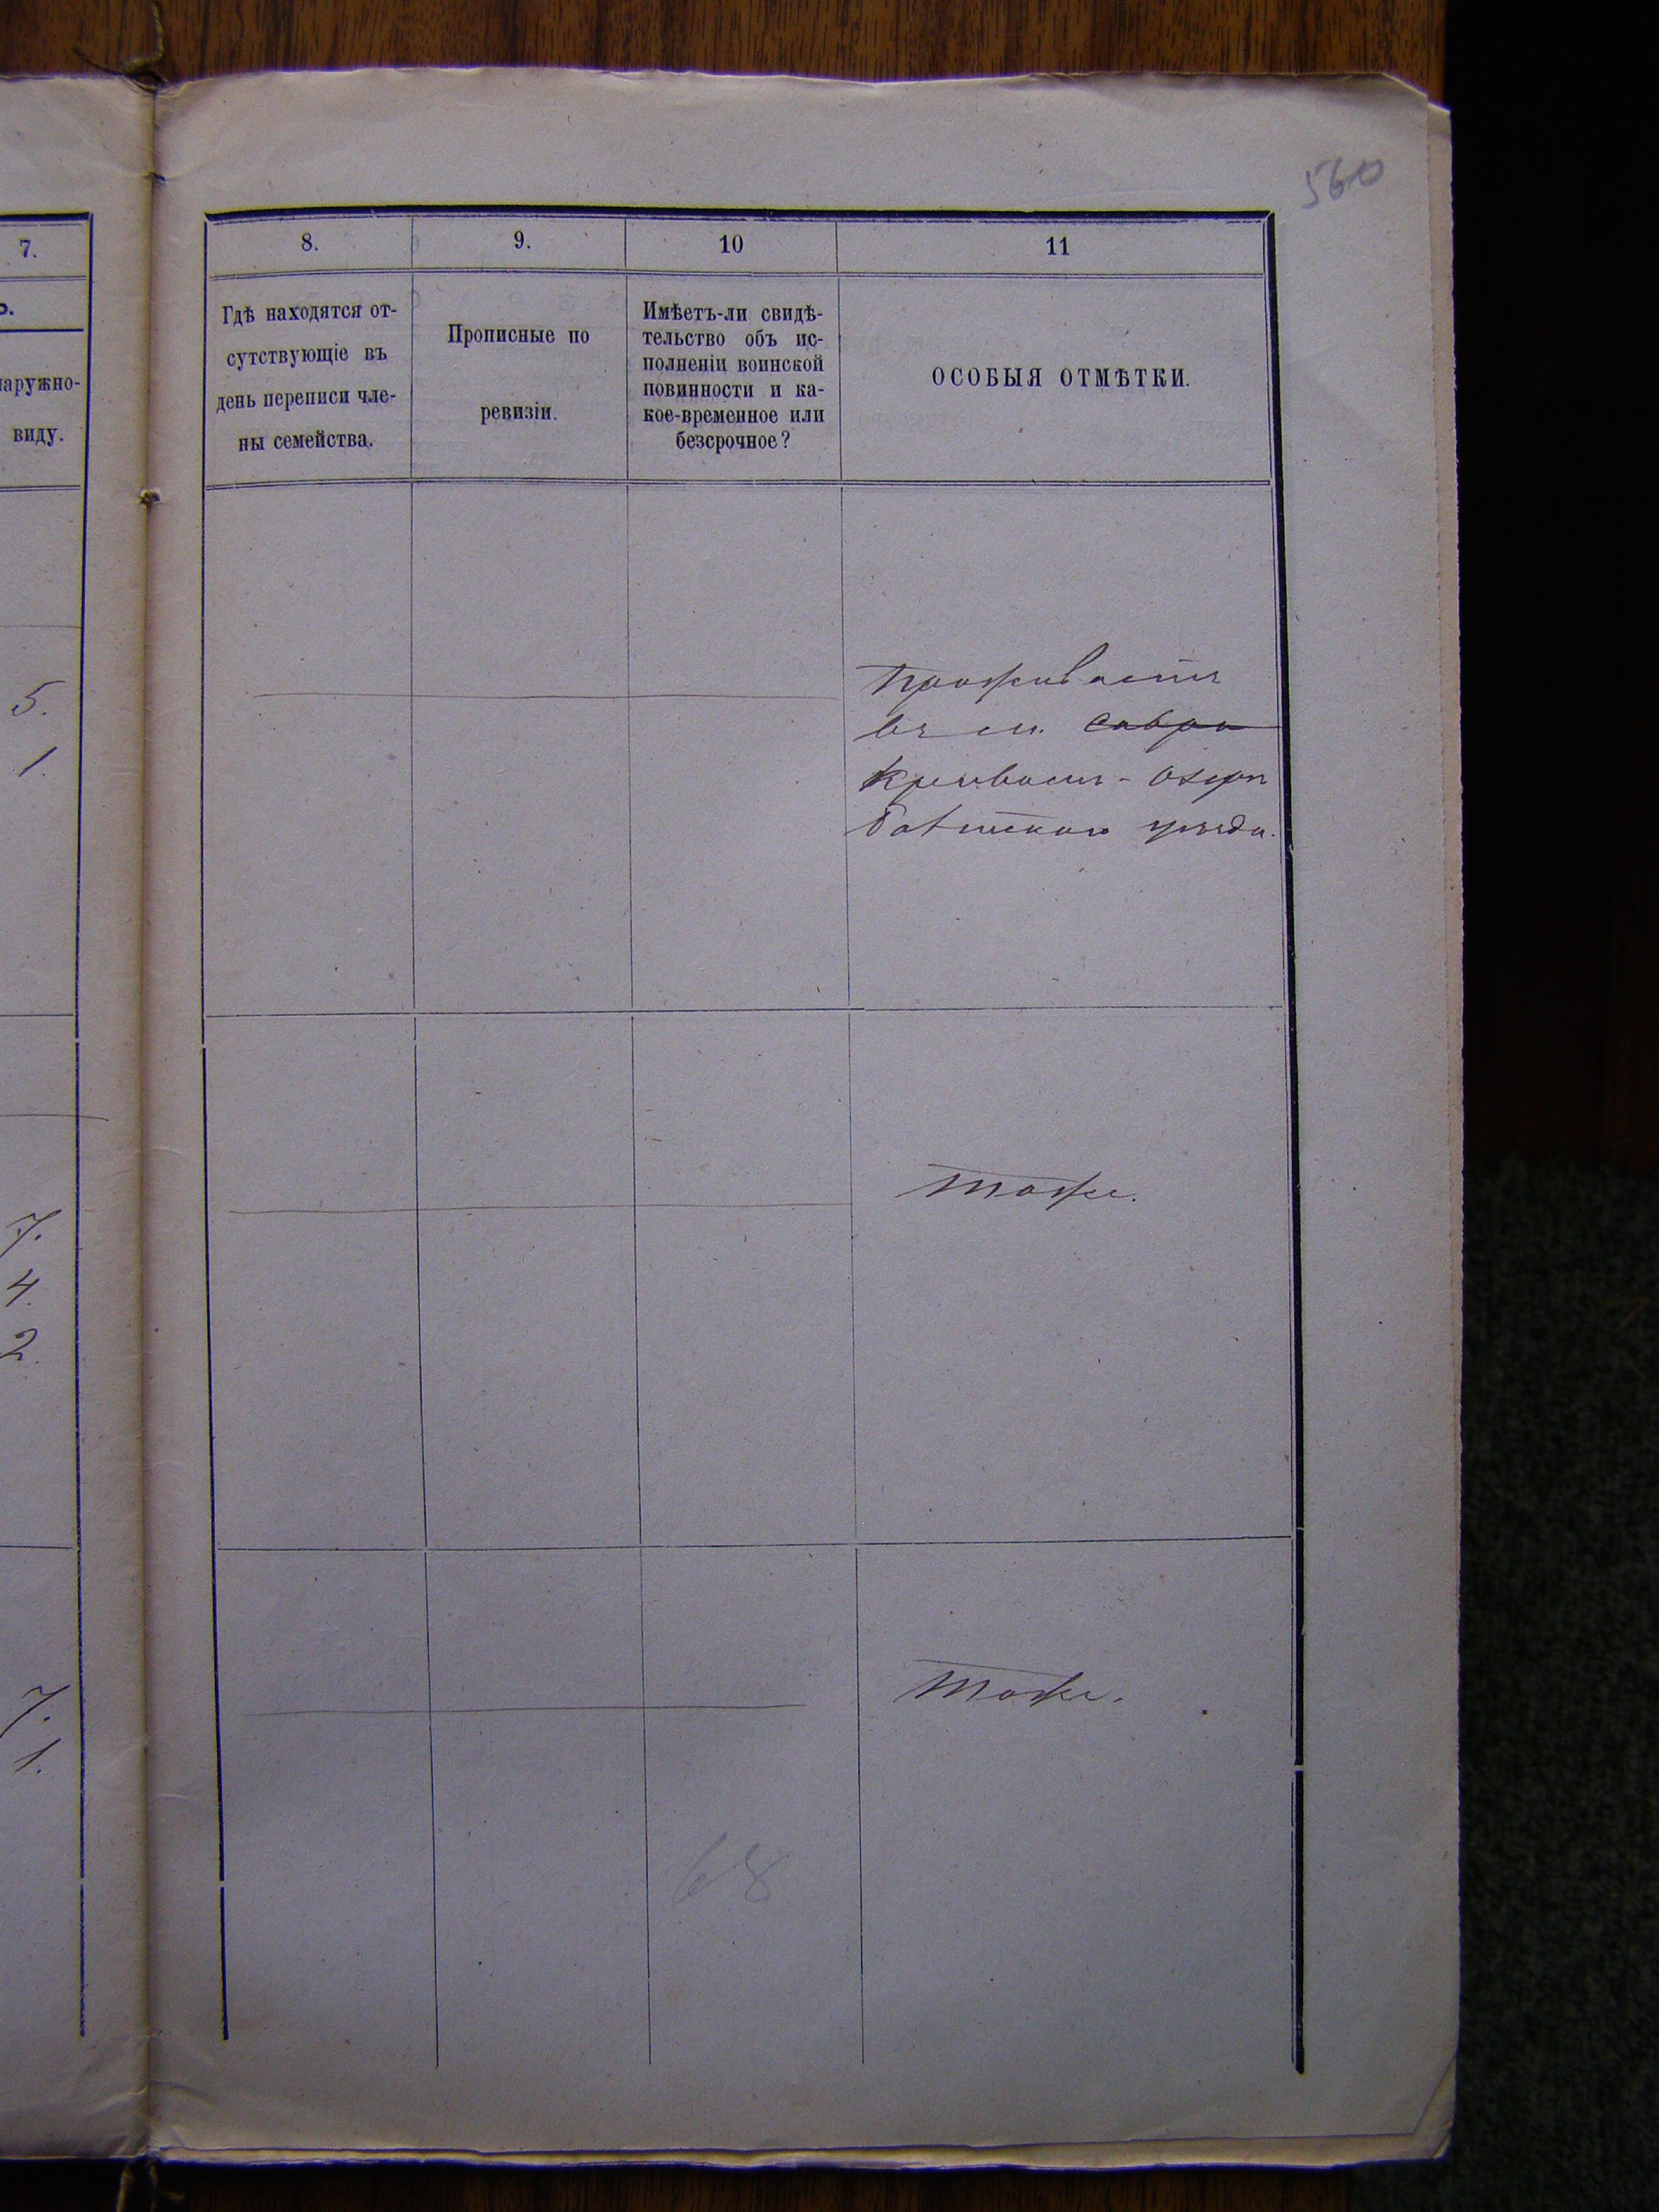 560
7.
8.
9.
10
11
наружно-
виду.
Гдѣ находятся от-
сутствующіе въ
день переписи чле-
ны семейства.
Прописные по
ревизіи.
Имѣетъ-ли свидѣ-
тельство объ ис-
полненіи воинской
повинности и ка-
кое-временное или
безсрочное?
ОСОБЫЯ ОТМѢТКИ.
5.
1.
Проживаетъ
въ м. Савра
Кривомъ-Озерѣ
Балтскаго уѣзда.
7.
4.
2.
Тоже.
7.
1.
Тоже.
68